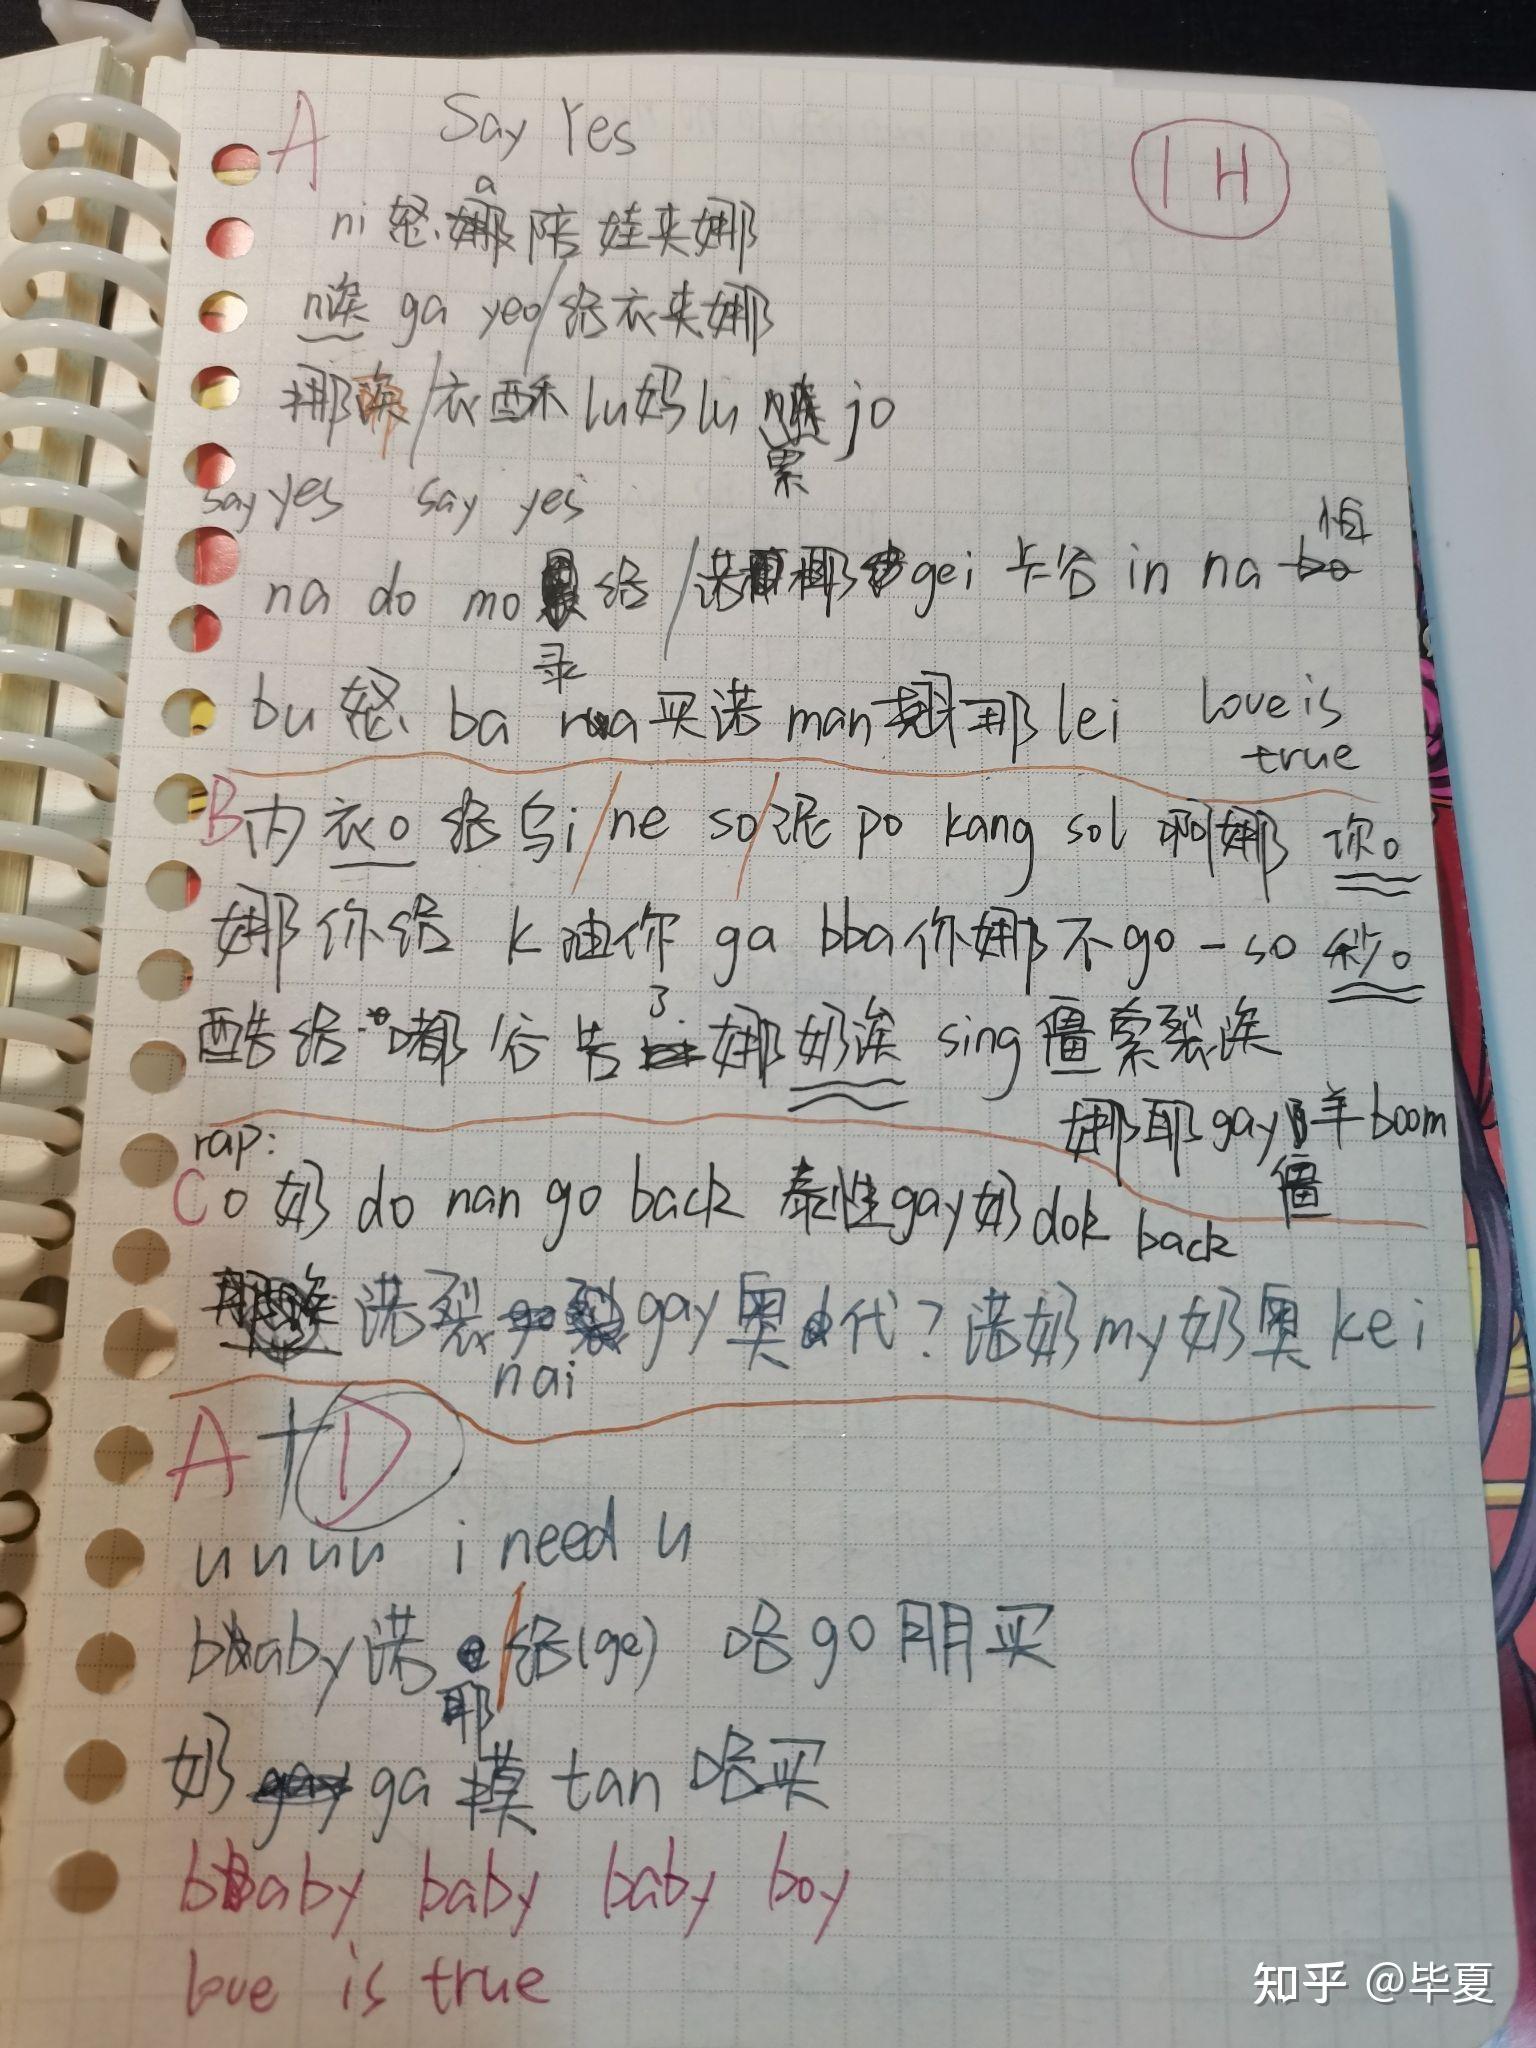 A Say Yes 1 H
a
ni 怒 娜 陪 娃夹娜
n诶 ga yeo/给衣夹娜
挪诶/衣酥 lu妈lu jo
累
say yes say yes
恒
na do mo 给/诺 那 gei 卡谷 in na bo
录
bu 怒 ba rua买诺 man 那 lei love is
true
B内 衣o 给乌i/ne so/泥 po kang sol 啊娜 你o
娜 你给 k 迪你 ga bba你娜不go-so 秒o
3
酷给 嘟谷 告 娜 奶诶 sing僵索裂诶
娜耶gay 羊boom
僵
rap:
C o 奶 do nan go back 泰性gay奶dok back
诺裂 gay奥 代? 诺奶my奶奥kei
nai
A+D
u u u u i need u
baby诺 /给(ge) 哈go朋买
耶
奶 gay ga 摸 tan 哈买
baby baby baby boy
love is true
知乎 @毕夏